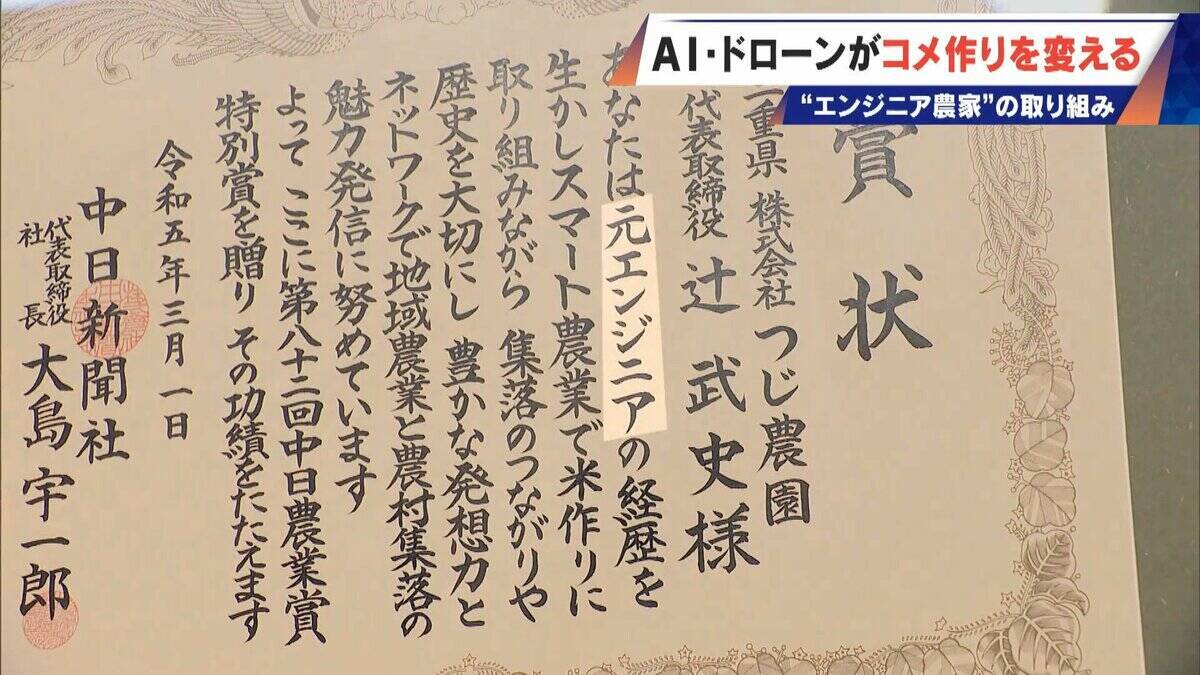 AI・ドローンがコメ作りを変える
“エンジニア農家”の取り組み
賞状
三重県 株式会社 つじ農園
代表取締役 辻 武史様
あなたは元エンジニアの経歴を
生かしスマート農業で米作りに
取り組みながら 集落のつながりや
歴史を大切にし 豊かな発想力と
ネットワークで地域農業と農村集落の
魅力発信に努めています
よって ここに第八十二回中日農業賞
特別賞を贈り その功績をたたえます
令和五年三月一日
中日新聞社
代表取締役
社長
大島宇一郎